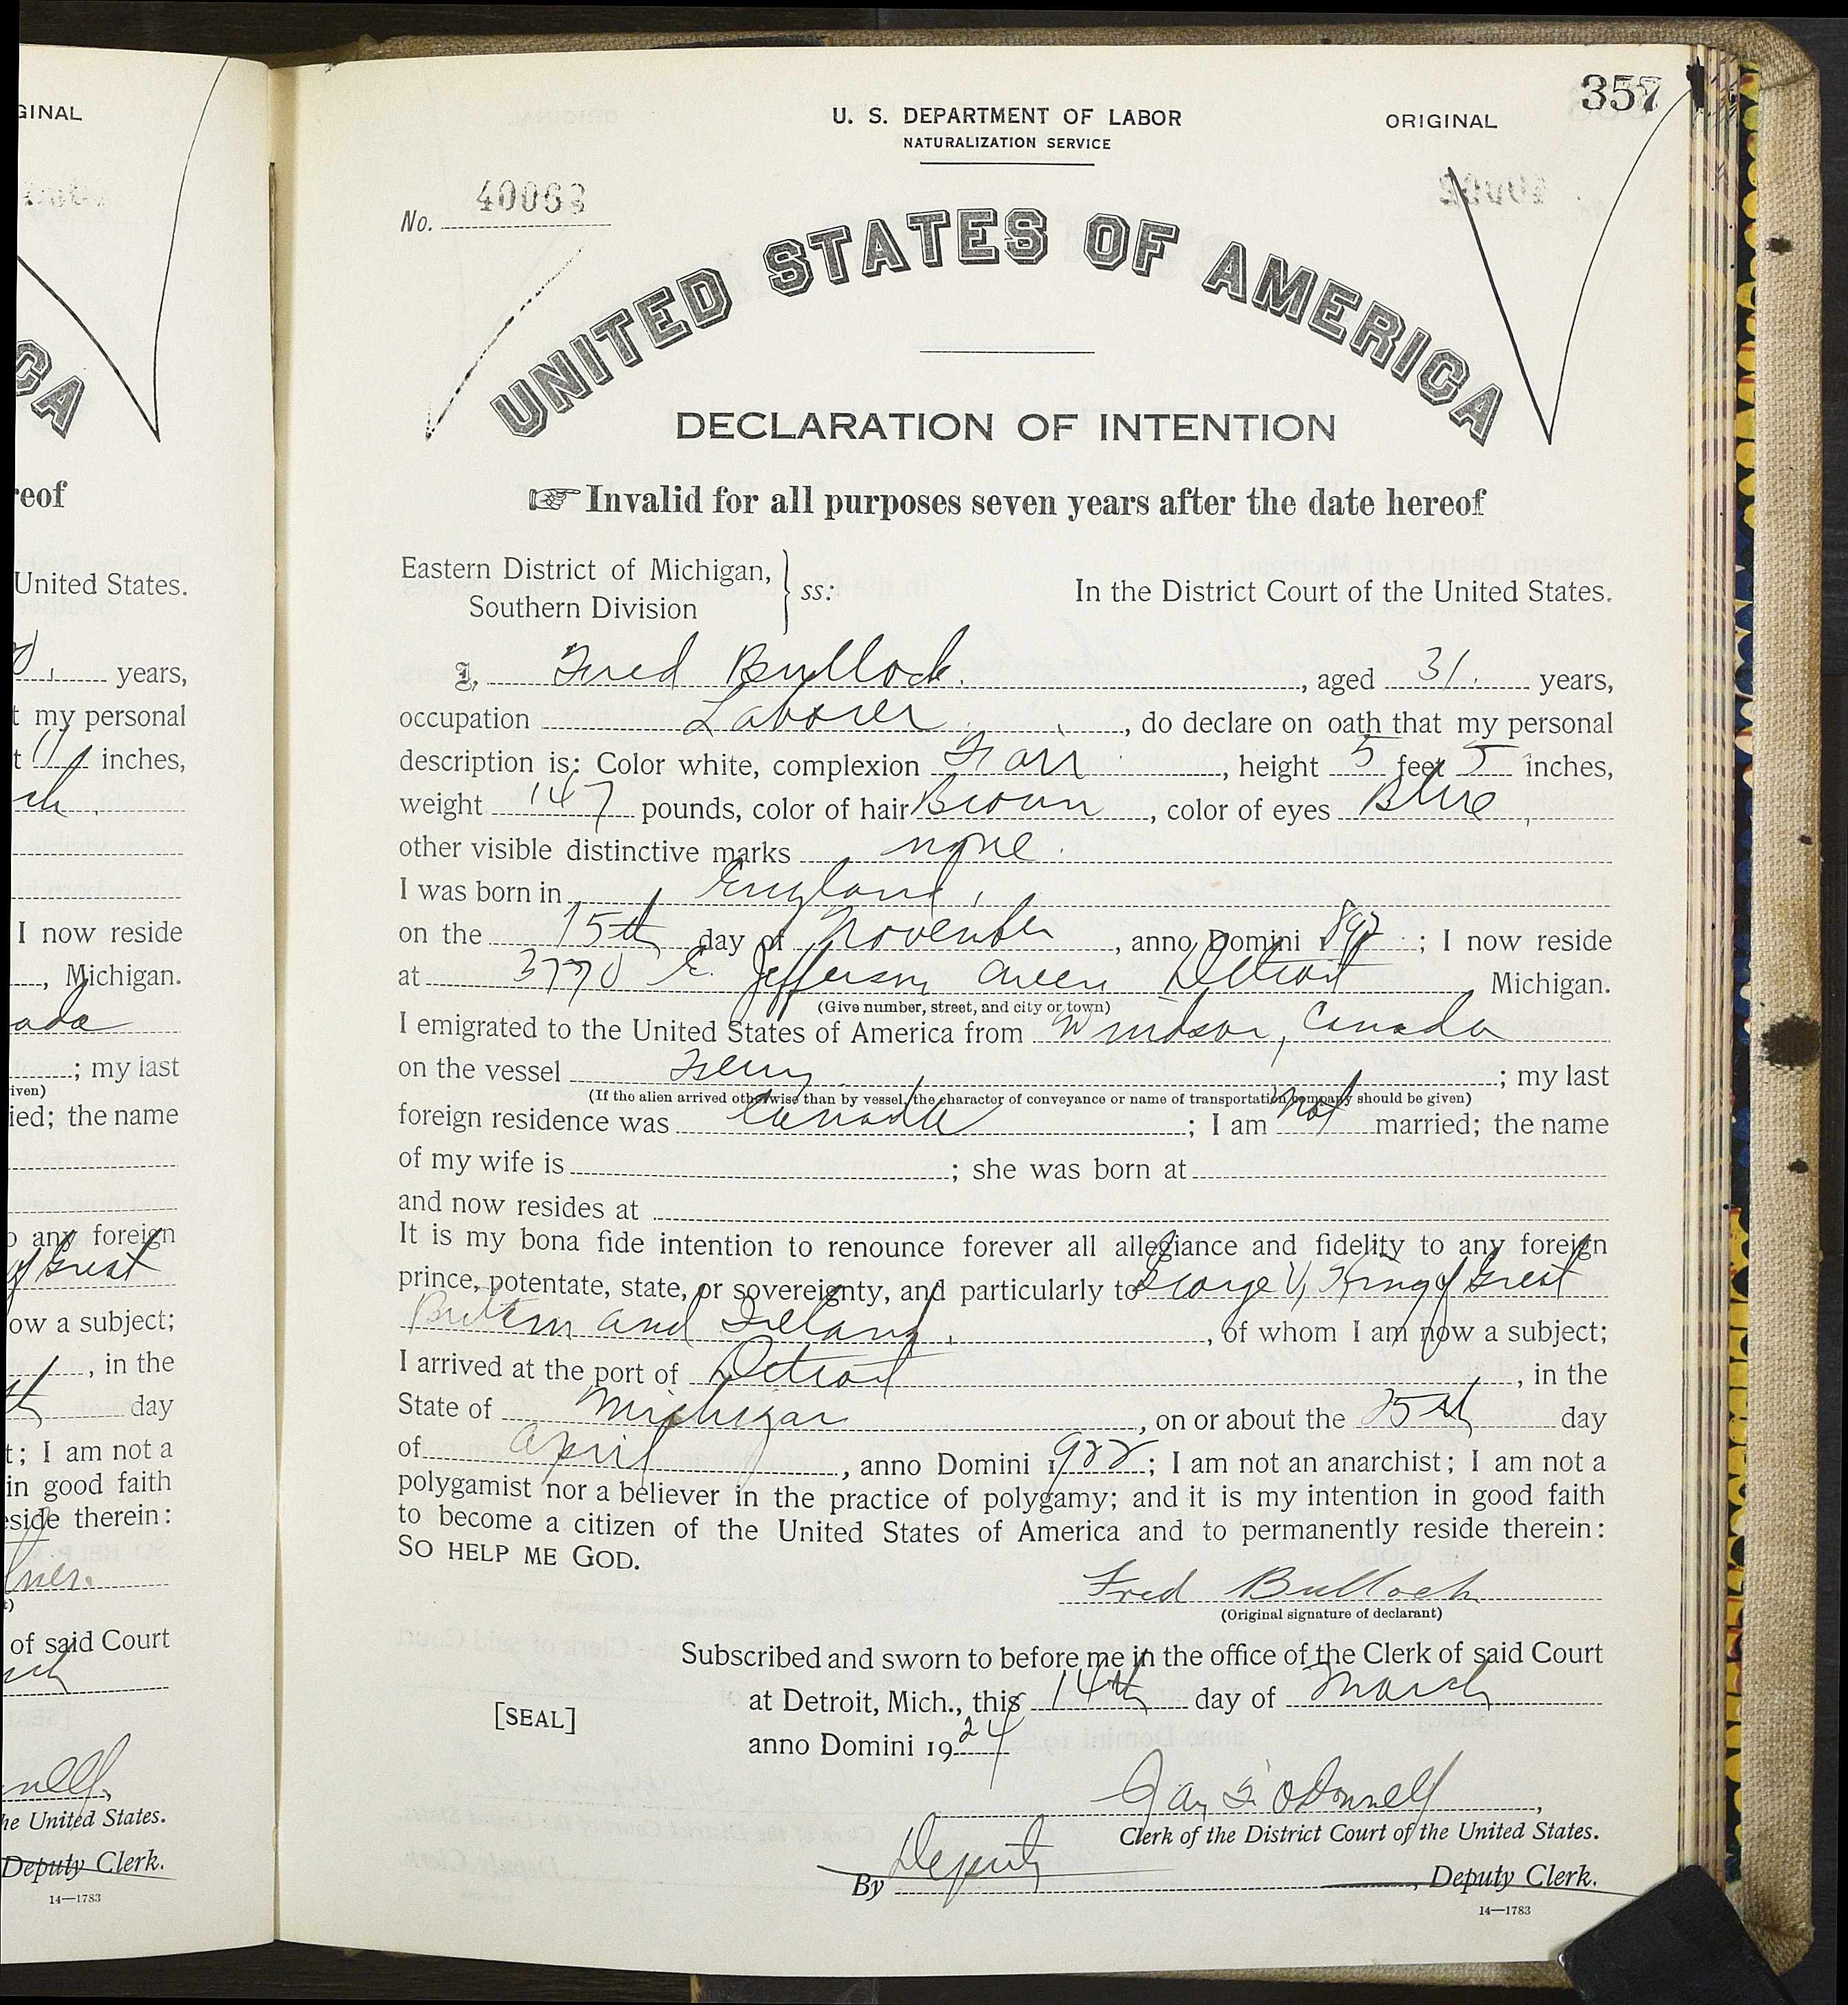 GINAL
CA
reof
United States.
years,
t my personal
t 11 inches,
I now reside
, Michigan.
ada
; my last
iven)
ied; the name
o any foreign
of Great
ow a subject;
, in the
th day
t; I am not a
in good faith
eside therein:
of said Court
he United States.
Deputy Clerk.
14—1783
357
U. S. DEPARTMENT OF LABOR
ORIGINAL
NATURALIZATION SERVICE
No. 40063
UNITED STATES OF AMERICA
DECLARATION OF INTENTION
☞ Invalid for all purposes seven years after the date hereof
Eastern District of Michigan, } ss: In the District Court of the United States.
Southern Division
I, Fred Bullock, aged 31. years,
occupation Laborer, do declare on oath that my personal
description is: Color white, complexion Fair, height 5 feet 5 inches,
weight 147 pounds, color of hair Brown, color of eyes Blue
other visible distinctive marks none.
I was born in England,
on the 15th day of November, anno Domini 1892; I now reside
at 3770 E. Jefferson Detroit Michigan.
(Give number, street, and city or town)
I emigrated to the United States of America from Windsor, Canada
on the vessel Ferry; my last
(If the alien arrived otherwise than by vessel, the character of conveyance or name of transportation company should be given)
foreign residence was Canada; I am not married; the name
of my wife is ; she was born at
and now resides at
It is my bona fide intention to renounce forever all allegiance and fidelity to any foreign
prince, potentate, state, or sovereignty, and particularly to George V, King of Great
Britain and Ireland, of whom I am now a subject;
I arrived at the port of Detroit, in the
State of Michigan, on or about the 25th day
of April, anno Domini 1922; I am not an anarchist; I am not a
polygamist nor a believer in the practice of polygamy; and it is my intention in good faith
to become a citizen of the United States of America and to permanently reside therein:
SO HELP ME GOD.
Fred Bullock
(Original signature of declarant)
Subscribed and sworn to before me in the office of the Clerk of said Court
at Detroit, Mich., this 14th day of March
[SEAL]
anno Domini 1924
Jay G. O'Donnell,
Clerk of the District Court of the United States.
By Deputy, Deputy Clerk.
14—1783